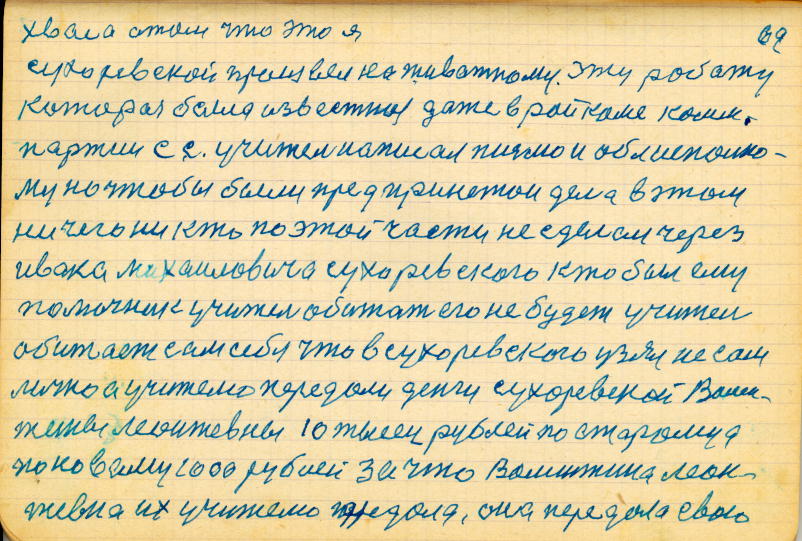 хвала отом что это я 69
сухоревской произвел по живатному. эту работу
которая была известная даже в райкоме комм.
партии с с. учител написал писмо и облисполко-
му но чтобы были предпринетои дела в этом
ничего никто по этой части не сделал через
ивана михаиловича сухоревского кто был ему
помочник учител обитат его не будет учител
обитает сам себя что в сухоревского узял не сам
лично а учителю передали денги сухоревской Вален-
тины леонтевны 10 тысеч рублей по старому а
по новаму 1000 рублей за что Валинтина леон-
тевна их учителю предола, она передола свою